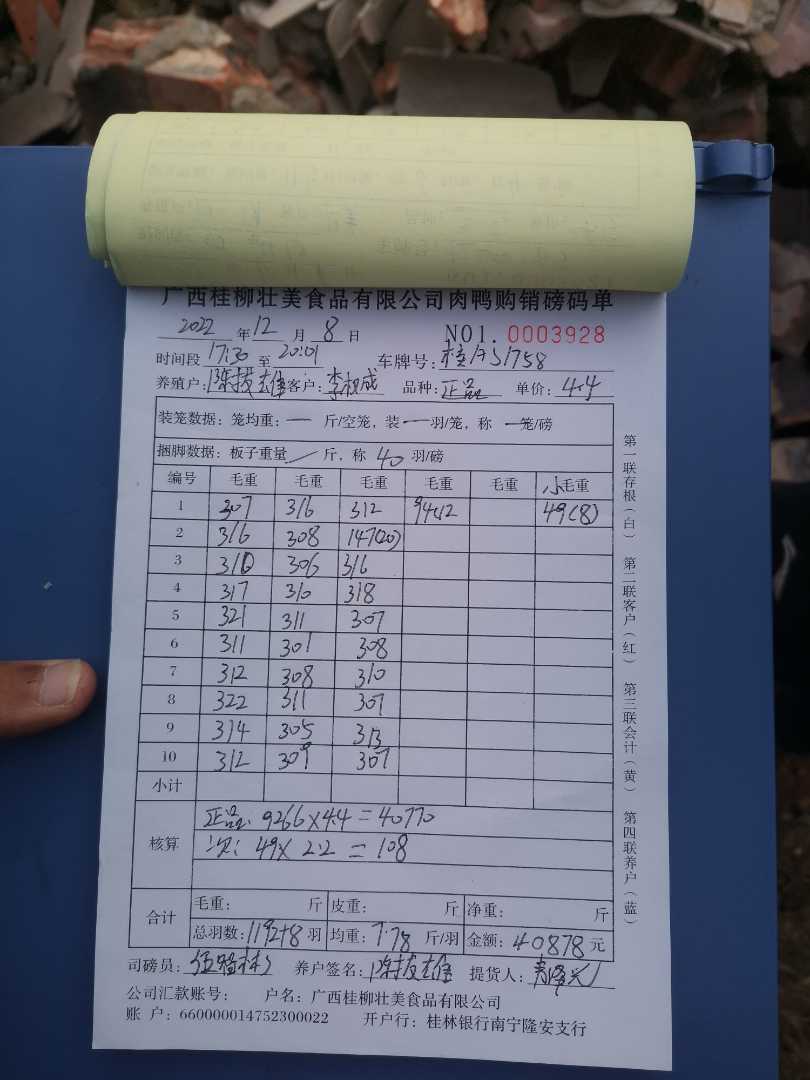 广西桂柳壮美食品有限公司肉鸭购销磅码单
2022 年 12 月 8 日 NO1. 0003928
时间段 17:30 至 20:01 车牌号: 桂A51758
养殖户: 陈拔雄 客户: 李权成 品种: 正品 单价: 4.4
装笼数据: 笼均重: — 斤/空笼, 装 — 羽/笼, 称 — 笼/磅
捆脚数据: 板子重量 / 斤, 称 40 羽/磅
编号 毛重 毛重 毛重 毛重 毛重 小毛重
1 307 316 312 94(12 49(8)
2 316 308 147(20)
3 310 306 316
4 317 310 318
5 321 311 307
6 311 301 308
7 312 308 310
8 322 311 307
9 314 305 313
10 312 309 307
小计
核算
正品: 9266×4.4=40770
次: 49×2.2=108
合计
毛重: 斤 皮重: 斤 净重: 斤
总羽数: 1192+8 羽 均重: 7.78 斤/羽 金额: 40878 元
司磅员: 养户签名: 陈拔雄 提货人:
公司汇款账号: 户名: 广西桂柳壮美食品有限公司
账 户: 660000014752300022 开户行: 桂林银行南宁隆安支行
第一联存根(白) 第二联客户(红) 第三联会计(黄) 第四联养户(蓝)